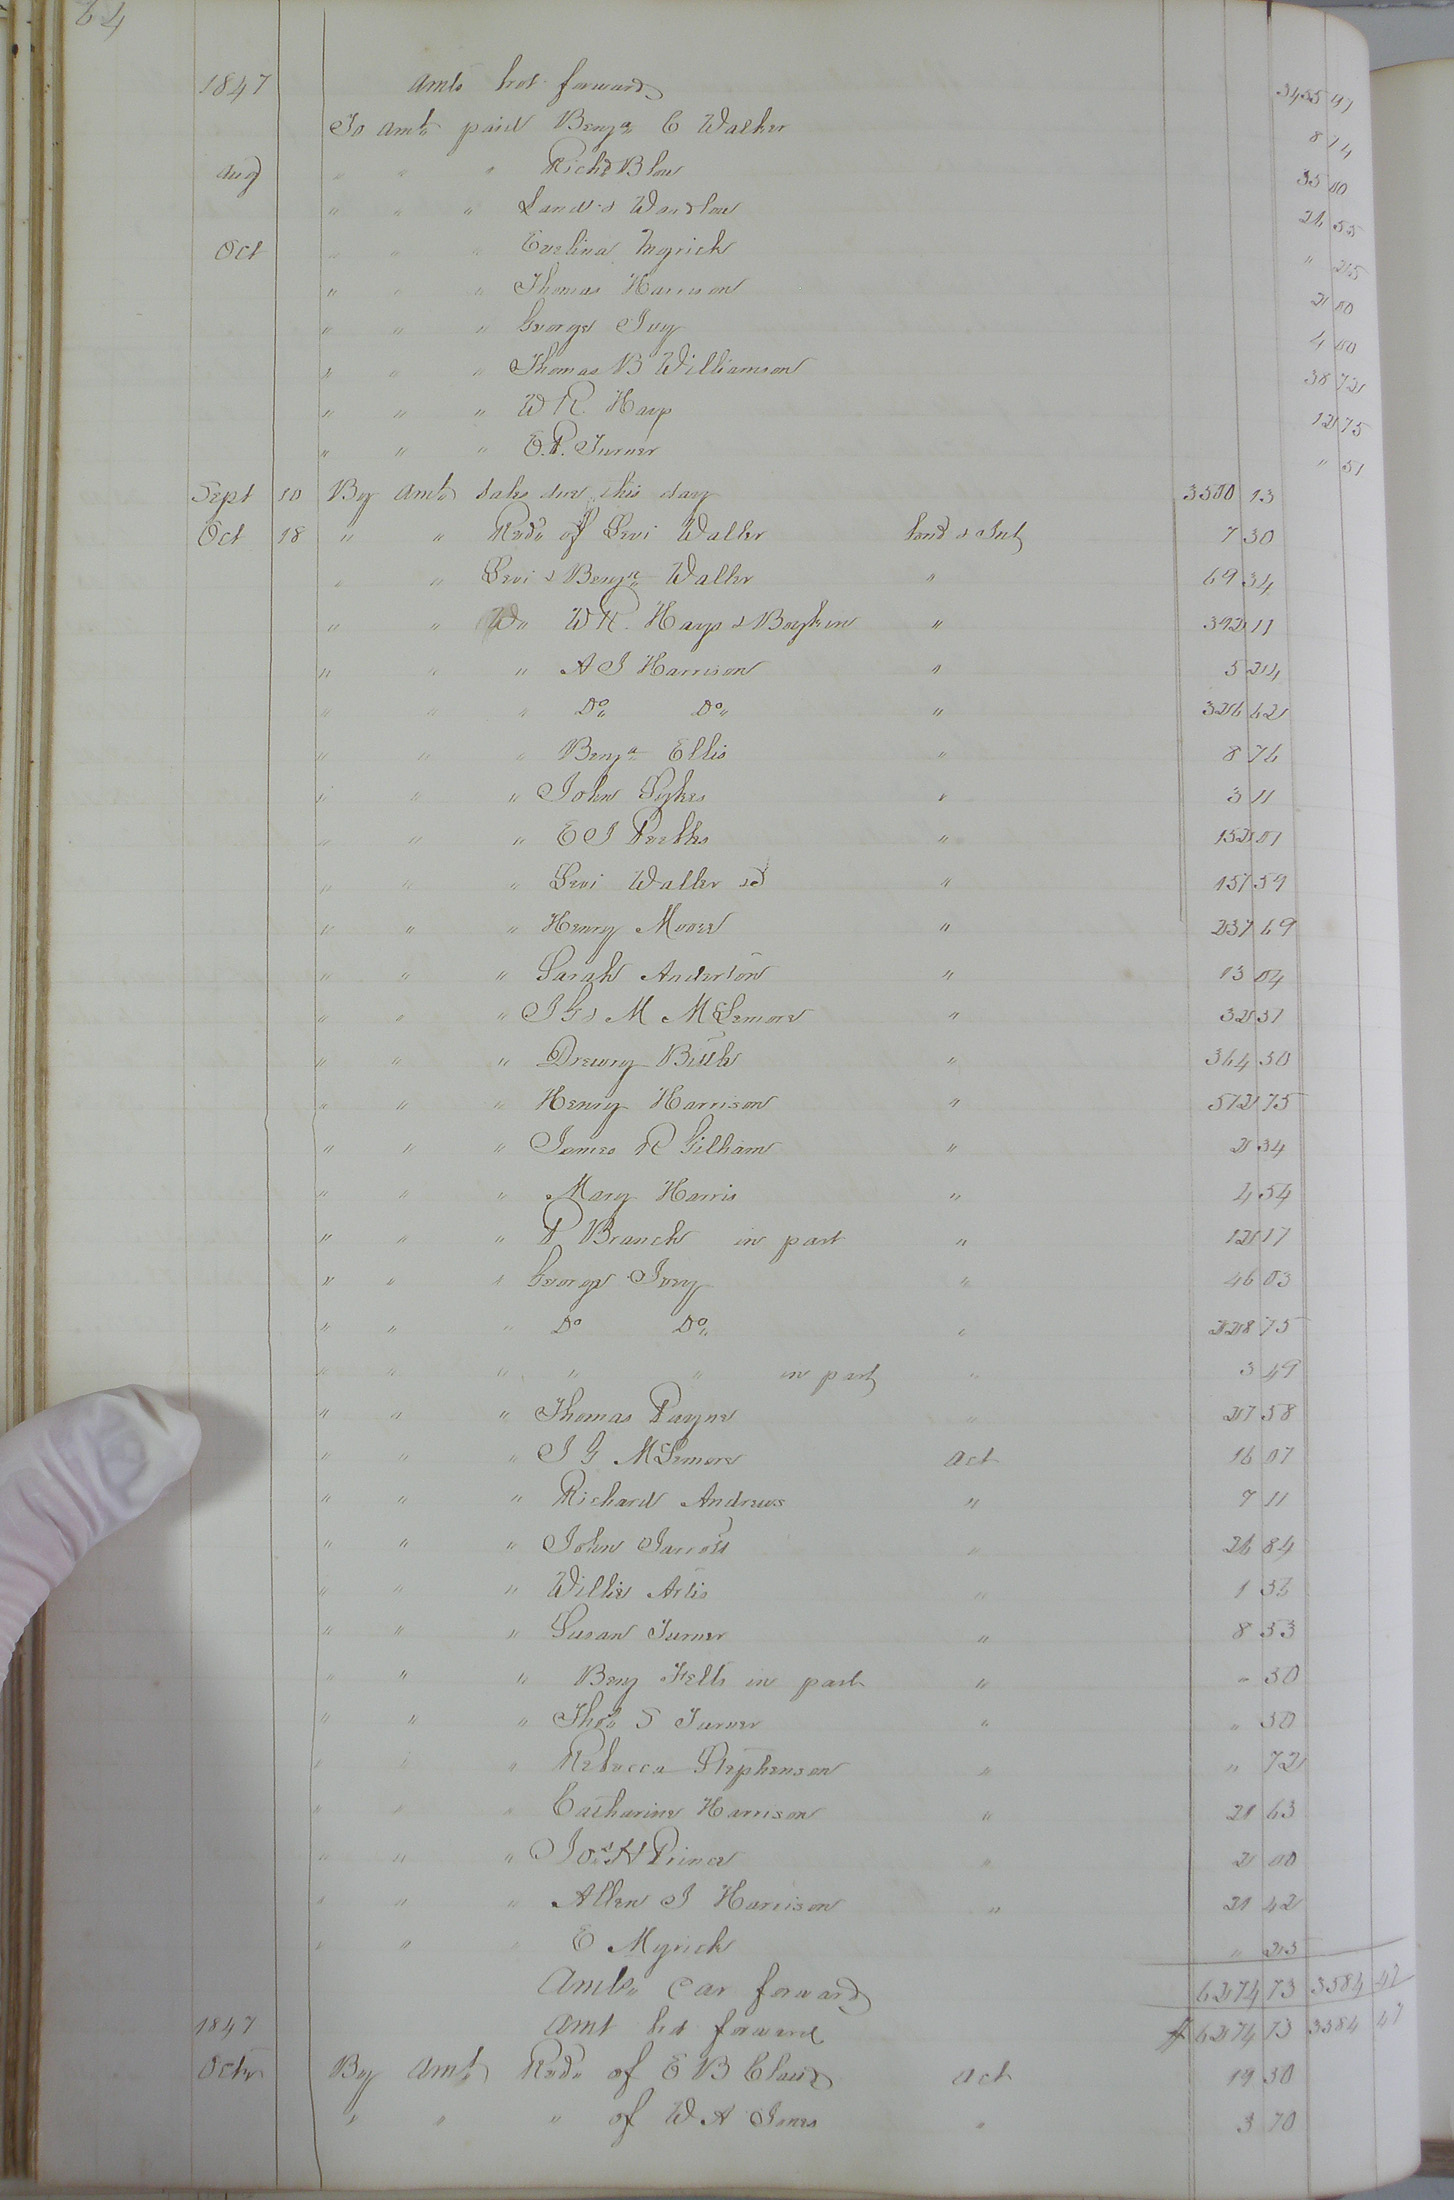 64
1847 Amts brot forward 3455 97
To Amt paid Benja C Walker 8 14
Aug " " " Richd Blow 35 00
" " " Land & Wardlow 26 55
Oct " " " Evelina Myrick " 25
" " " Thomas Harrison 2 00
" " " George Ivy 4 00
" " " Thomas B Williamson 38 72
" " " W R. Harp 12 75
" " " E. P. Turner " 51
Sept 10 By Amt Sales due this day 3500 13
Oct 18 " " Recd of Levi Waller bond & Int 7 30
" " Levi & Benja Waller " 69 34
" " Do W R. Harp & Boykin " 392 11
" " " A J Harrison " 5 24
" " " Do Do " 326 62
" " " Benja Ellis " 8 76
" " " John Sykes " 3 11
" " " E J Peebles " 152 01
" " " Levi Waller sd " 157 59
" " " Henry Moore " 237 69
" " " Sarah Anderson " 13 04
" " " J G & M McLemore " 32 37
" " " Drewry Bittle " 364 50
" " " Henry Harrison " 572 75
" " " James R Gilham " 2 34
" " " Mary Harris " 4 54
" " " P Branch in part " 12 17
" " " George Ivey " 46 03
" " " Do Do " 228 75
" " " " " in part " 3 49
" " " Thomas Payne " 27 58
" " " J G McLemore Act 16 07
" " " Richard Andrews " 7 11
" " " John Jarrott " 26 84
" " " Willie Artis " 1 56
" " " Susan Turner " 8 53
" " " Benj Felts in part " - 30
" " " Thos S Turner " " 50
" " " Rebecca Stephenson " " 72
" " " Catharine Harrison " 21 63
" " " Jos H Prince " 2 00
" " " Allen J Harrison " 21 42
" " " E Myrick " 25
Amts Car forward 6274 73 3584 47
1847 Amt bro forward $ 6274 73 3584 47
Octr By Amt Recd of E B Claud Act 19 50
" " " of W A Jones " 3 70